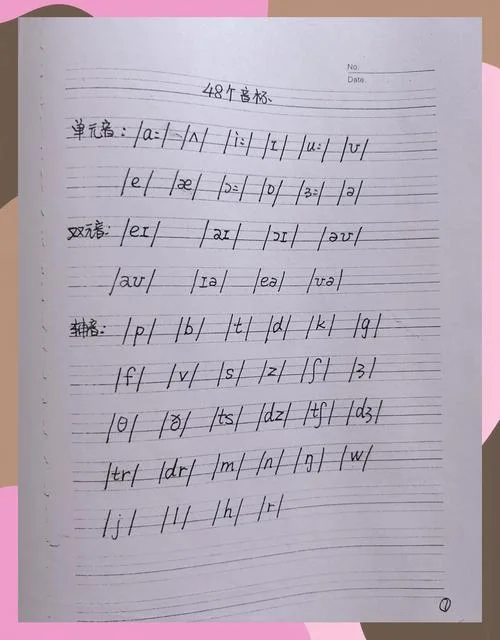 No.
Date.
48个音标
单元音: /a:/ /ʌ/ /i:/ /ɪ/ /u:/ /ʊ/
/e/ /æ/ /ɔ:/ /ɒ/ /ɜ:/ /ə/
双元音: /eɪ/ /aɪ/ /ɔɪ/ /əʊ/
/aʊ/ /ɪə/ /eə/ /ʊə/
辅音: /p/ /b/ /t/ /d/ /k/ /g/
/f/ /v/ /s/ /z/ /ʃ/ /ʒ/
/θ/ /ð/ /ts/ /dz/ /tʃ/ /dʒ/
/tr/ /dr/ /m/ /n/ /ŋ/ /w/
/j/ /l/ /h/ /r/
①